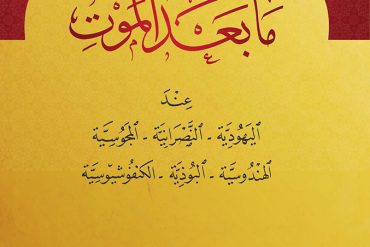 مَا بَعْدَ الْمَوْتِ
عِنْدَ
الْيَهُودِيَّة - النَّصْرَانِيَّة - الْمَجُوسِيَّة
الْهِنْدُوسِيَّة - الْبُوذِيَّة - الكنفُوشيُوسِيَّة